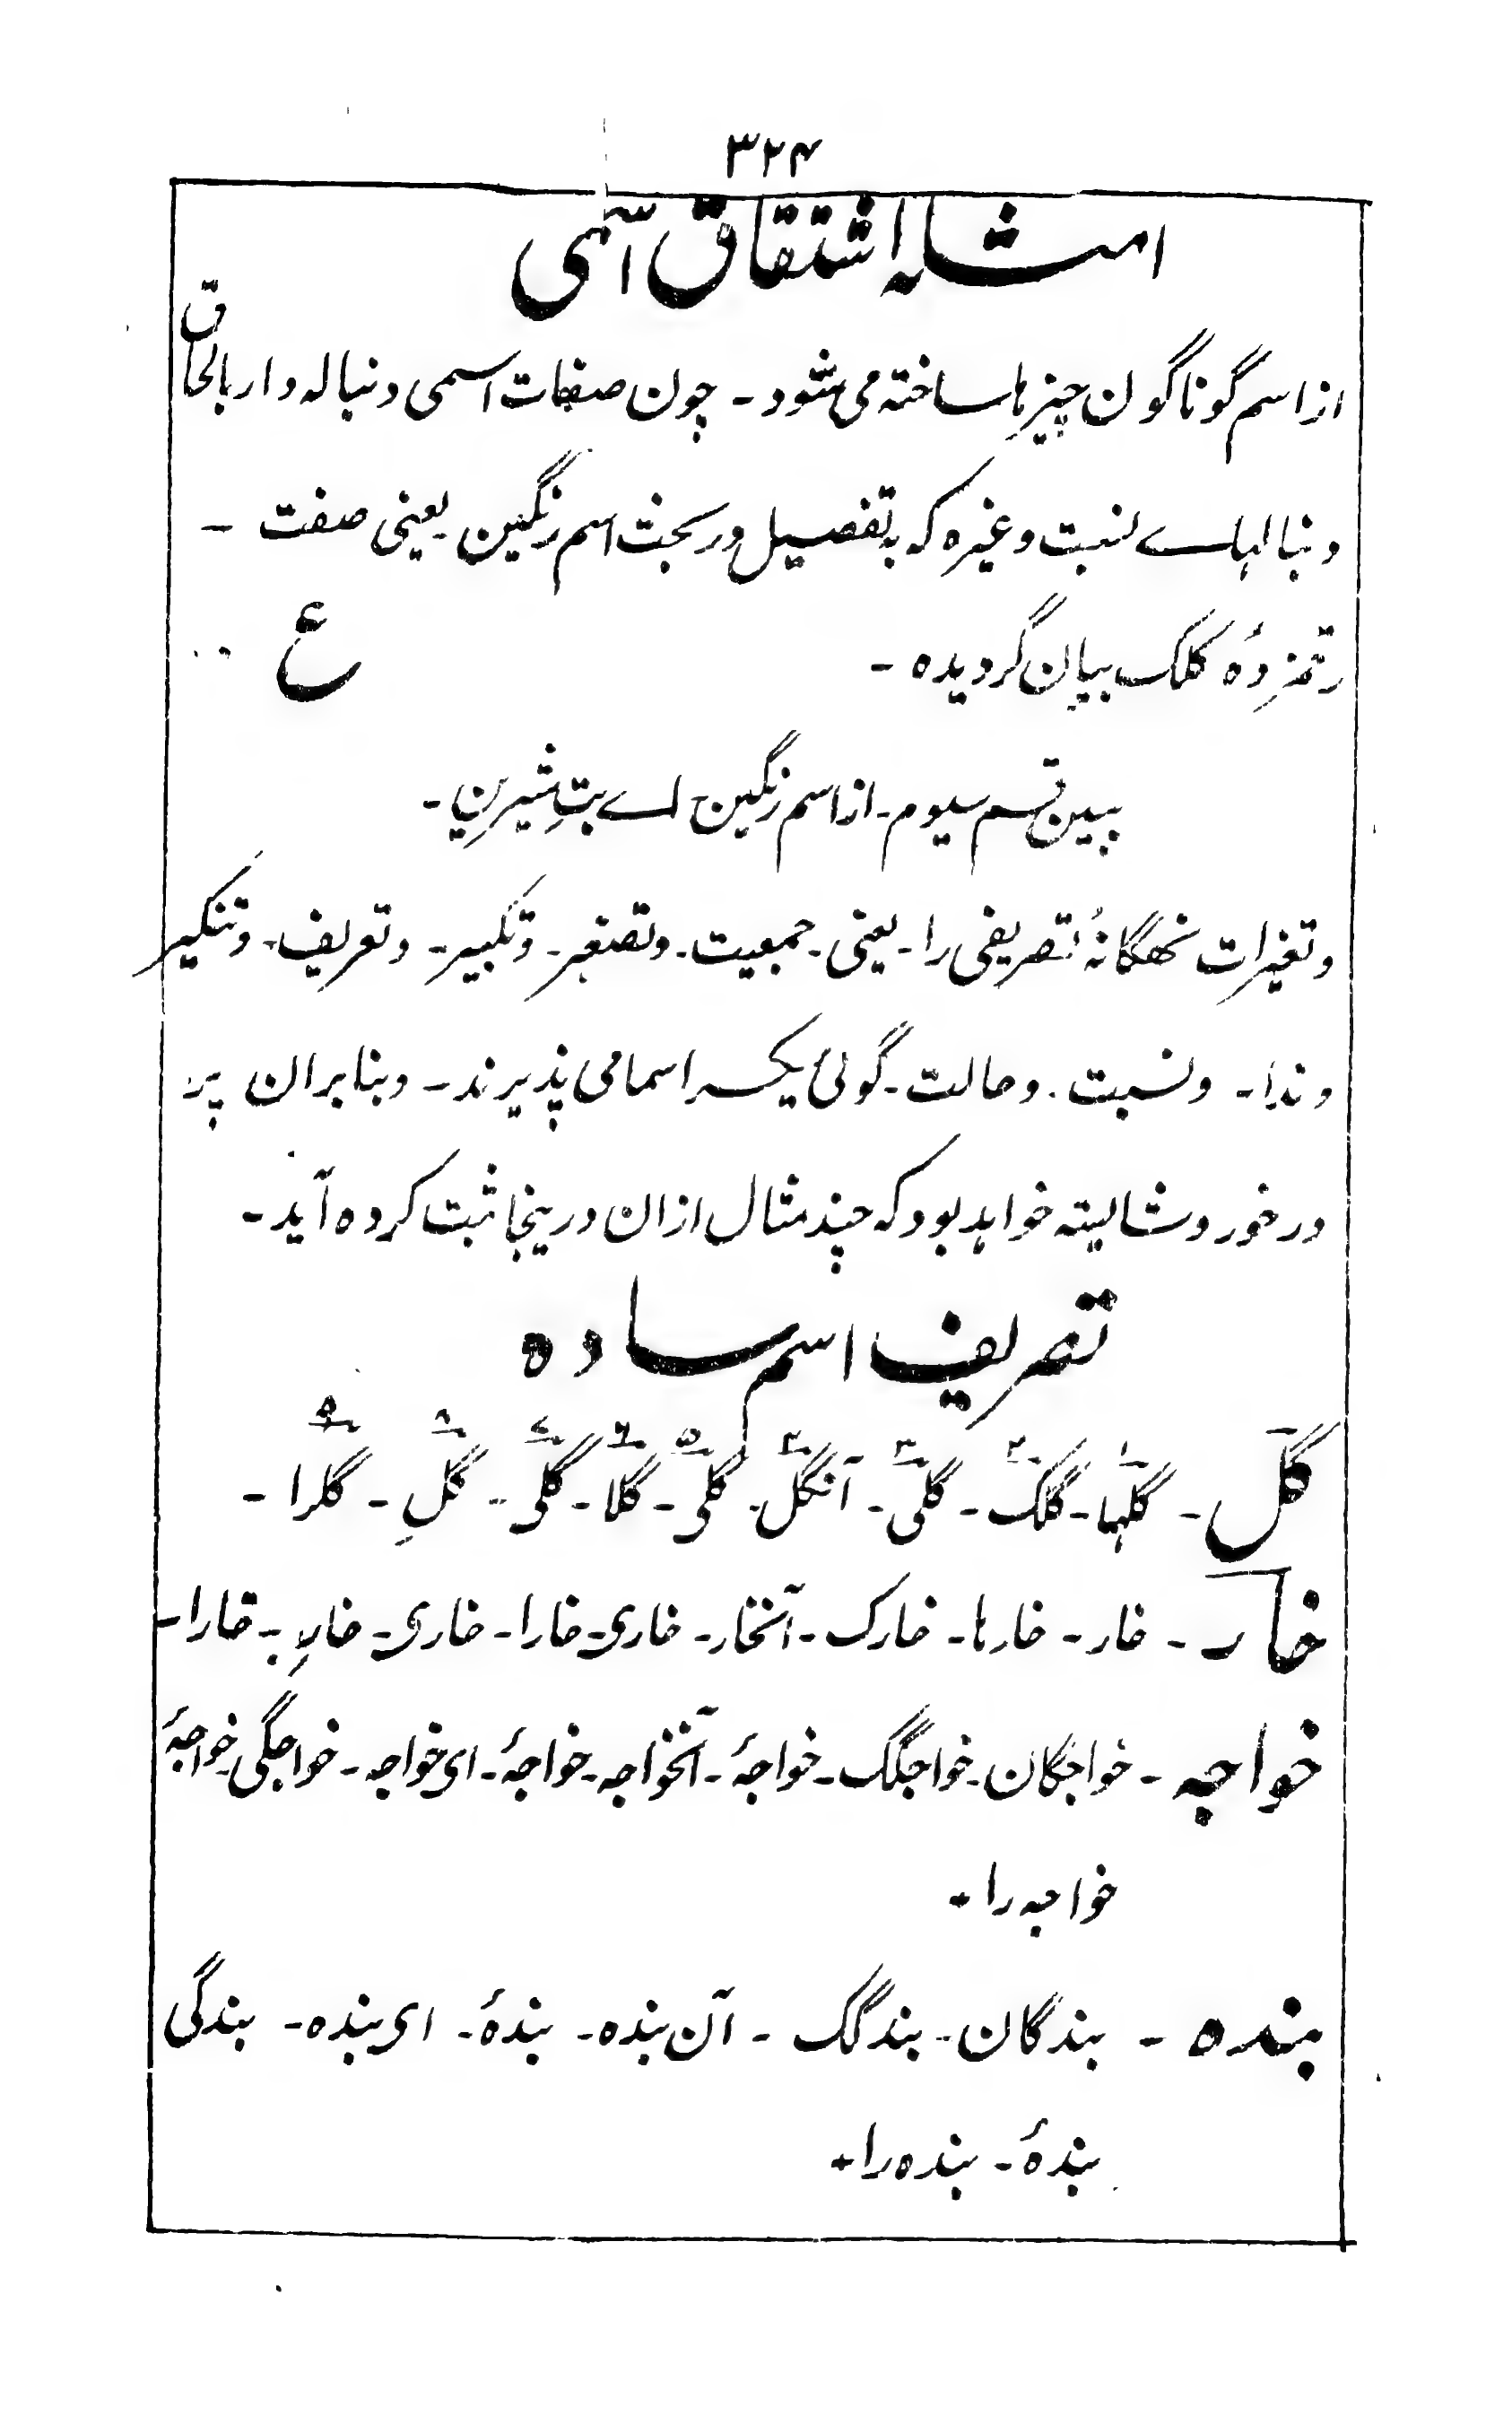 ۳۲۴
امثلۀ اشتقاق اسمی
از اسم گوناگون چیزها ساخته می شود ـ چون صفات اسمی دنباله دار بالحاق
دنبالهاے نسبت وغیره که به تفصیل در بحث اسم رنگین یعنی صفت ـ
رقمزدۀ کلک بیان گردیده ـ ع
ببین قسم سیوم ـ از اسم رنگین اے بتِ شیرین ـ
و تغیرات نهگانۀ تصریفی را ـ یعنی ـ جمعیت ـ وتصغیر ـ وتکبیر ـ وتعریف ـ وتنکیر
وندا ـ ونسبت ـ وحالت ـ گوئ یکسر اسما می پذیرند ـ وبنابران پر
درخور وشایسته خواهد بود که چند مثال ازان درینجا ثبت کرده آید ـ
تصریف اسم ساده
گل ـ گلها ـ گلک ـ گلی ـ آنگل ـ گلی ـ گلا ـ گلی ـ گلِ ـ گلرا ـ
۱ ۲ ۳ ۴ ۵ ۶ ۷ ۸ ۹
خار ـ خار ـ خارها ـ خارک ـ آنخار ـ خاری ـ خارا ـ خاری ـ خارِ ـ خارا ـ
خواجه ـ خواجگان ـ خواجگک ـ خواجۀ ـ آنخواجه ـ خواجۀ ـ ای خواجه ـ خواجگی ـ خواجۀ
خواجه را ـ
بنده ـ بندگان ـ بندگک ـ آن بنده ـ بندۀ ـ ای بنده ـ بندگی
بندۀ ـ بنده را ـ